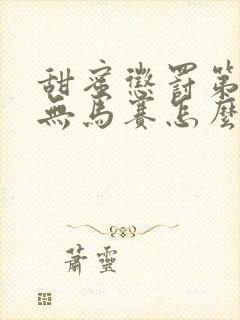 甜蜜懲罰第
無馬賽怎麼
蕭靈